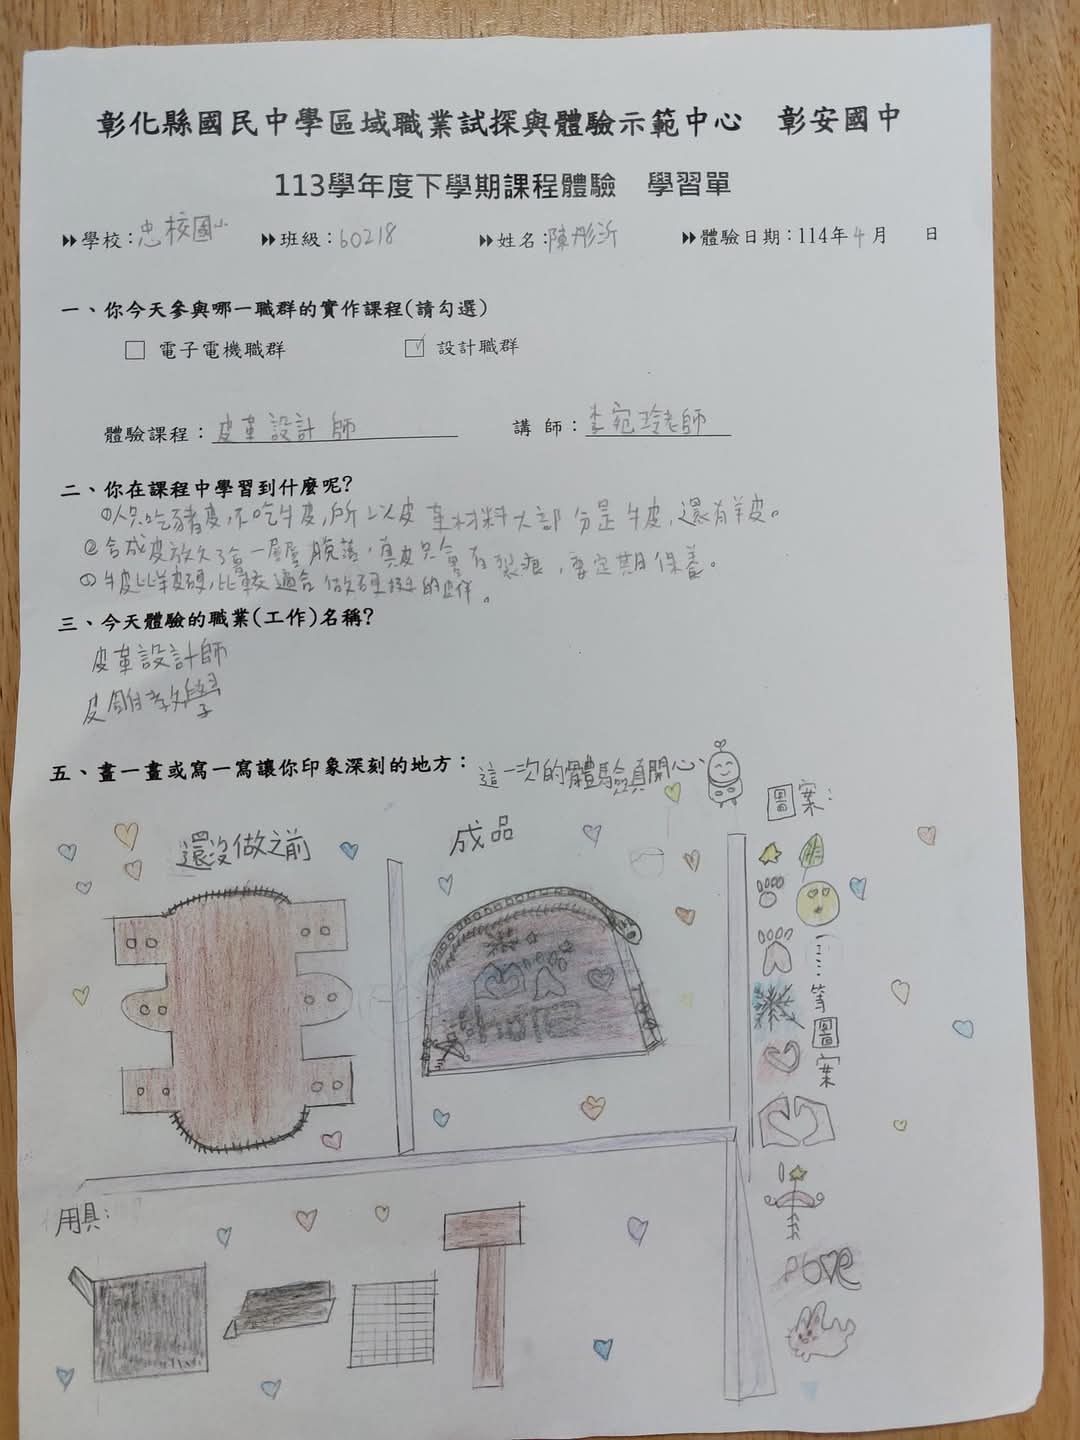 彰化縣國民中學區域職業試探與體驗示範中心　彰安國中
113學年度下學期課程體驗　學習單
學校：忠校國小　班級：60218　姓名：陳彤沂　體驗日期：114年4月　日
一、你今天參與哪一職群的實作課程(請勾選)
□ 電子電機職群　☑ 設計職群
體驗課程：皮革設計師　講師：李宛玲老師
二、你在課程中學習到什麼呢?
①人只吃豬皮，不吃牛皮，所以皮革材料大部分是牛皮，還有羊皮。
②合成皮放久了會一層層脫落，真皮只會有裂痕，要定期保養。
牛皮比羊皮硬，比較適合做硬挺的
三、今天體驗的職業(工作)名稱?
皮革設計師
皮雕教學
五、畫一畫或寫一寫讓你印象深刻的地方：這一次的體驗真開心
還沒做之前
成品
圖案：
等圖案
用具：